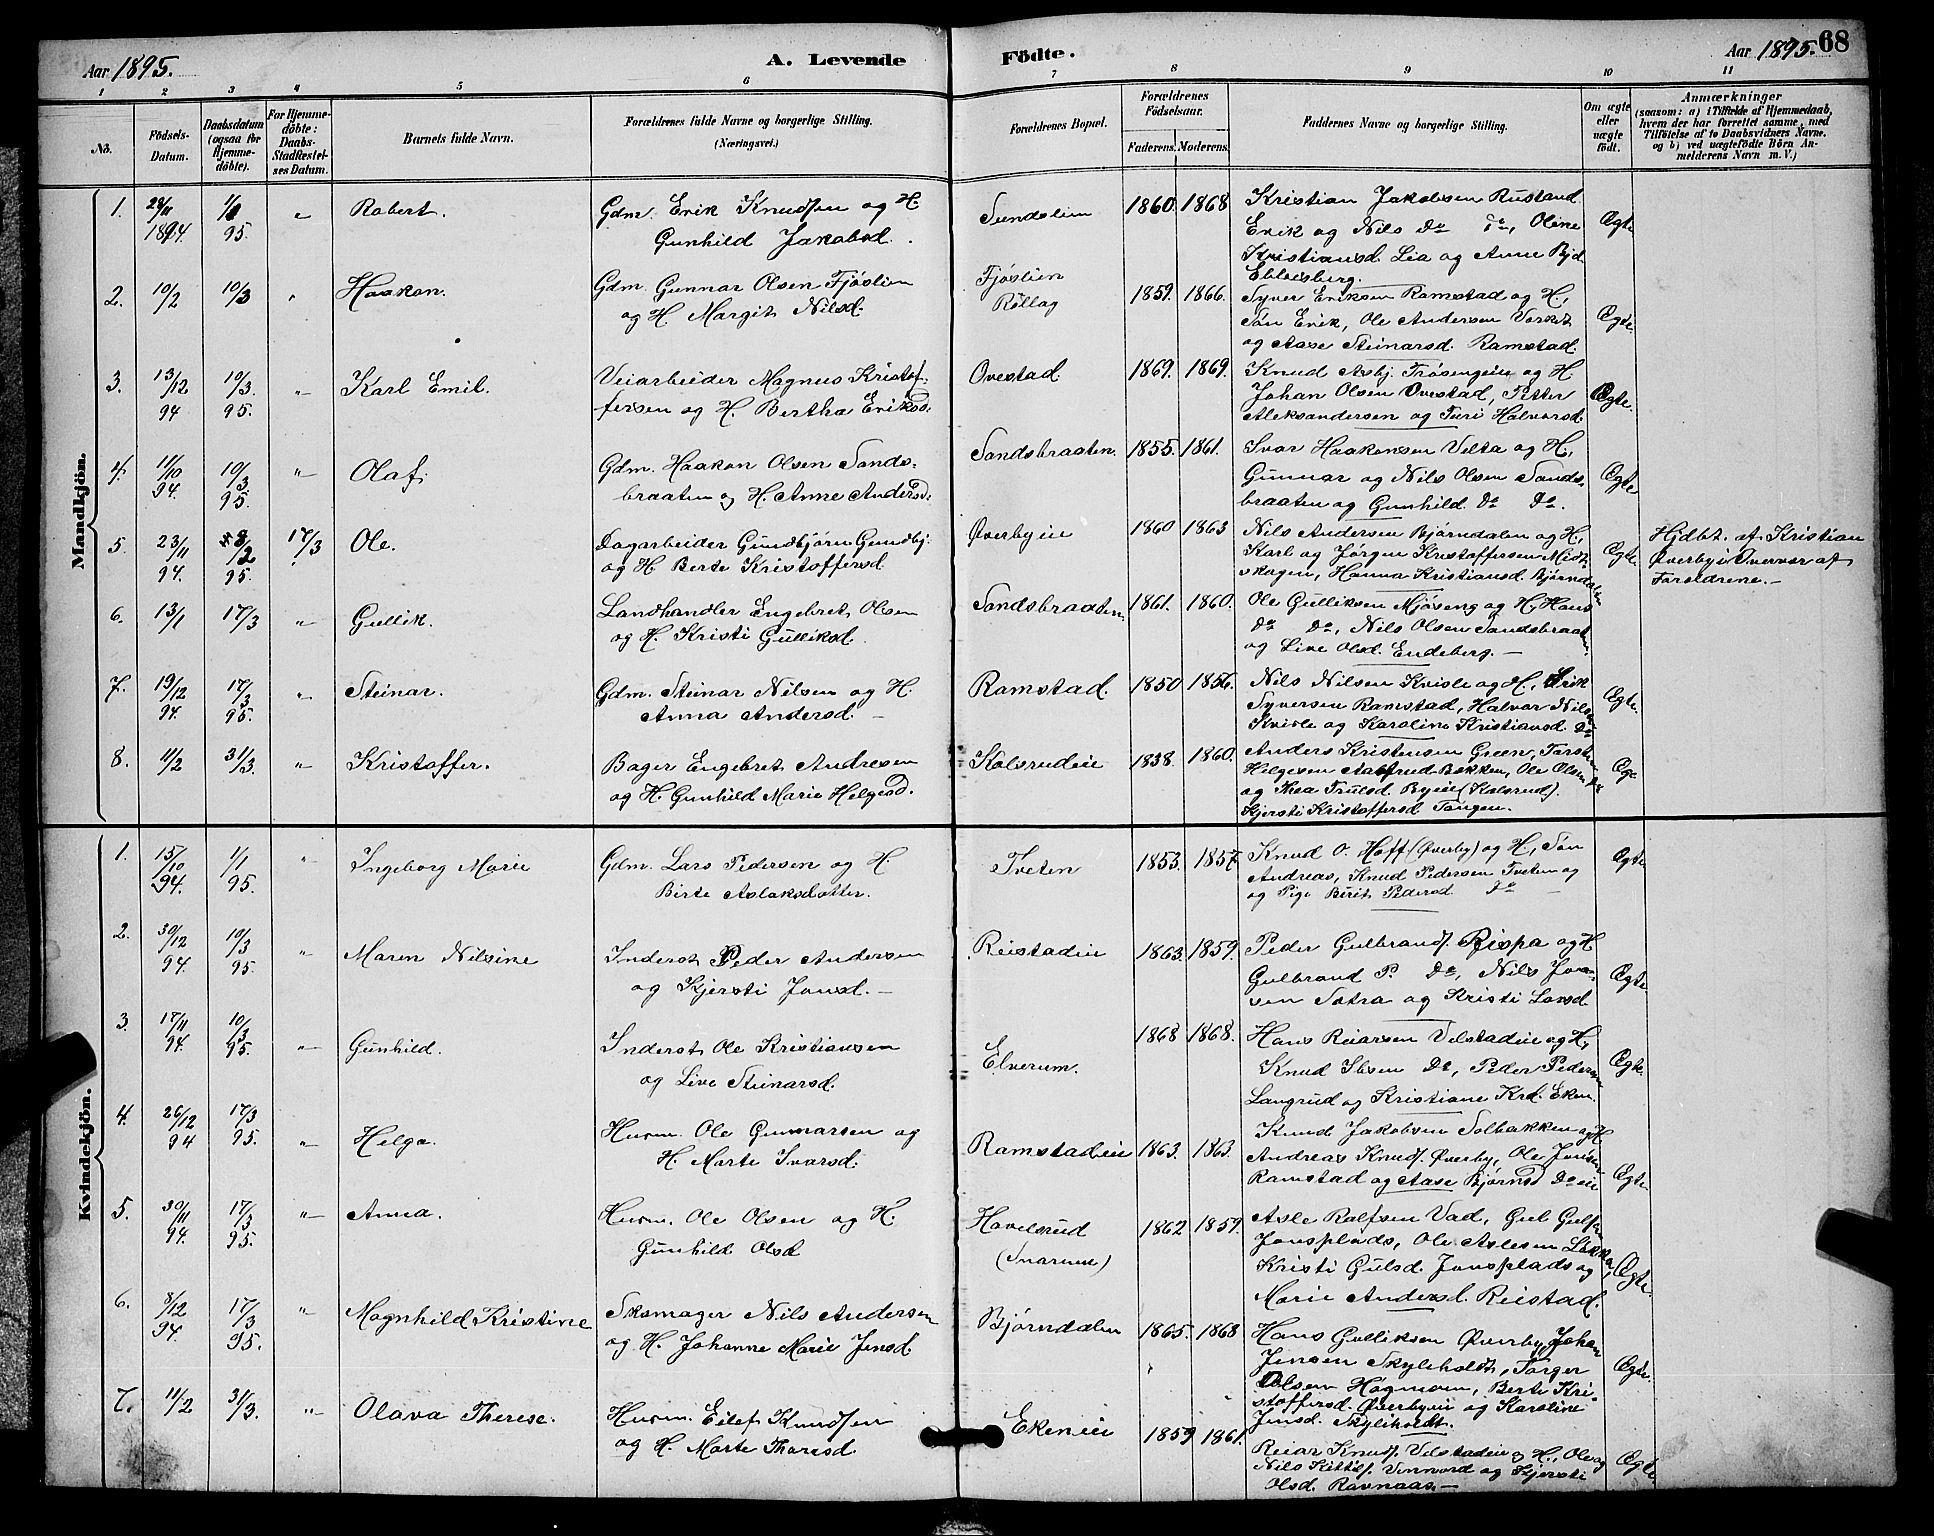 Aar 1895. A. Levende Födte. Aar 1895. 68
1 2 3 4 5 6 7 8 9 10 11
No.
Födsels-Datum.
Daabsdatum (ogsaa for Hjemme-döbte).
For Hjemme-döbte: Daabs-Stadfæstel-ses Datum.
Barnets fulde Navn.
Forældrenes fulde Navne og borgerlige Stilling.
(Næringsvei.)
Forældrenes Bopæl.
Forældrenes Födselsaar.
Faderens. Moderens.
Faddernes Navne og borgerlige Stilling.
Om ægte eller uægte födt.
Anmærkninger
(saasom: a) i Tilfælde af Hjemmedaab, hvem der har forrettet samme, med Tilföielse af to Daabsvidners Navne. og b) ved uægtefödte Börn An-melderens Navn m. V.)
Mandkjön.
1. 28/11 1894. 1/1 95. " Robert. Gdm. Erik Knudsen og H.
Gunhild Jakobsd.
Sundslien 1860. 1868 Kristian Jakobsen Rustand
Erik og Nils Do Do, Oline
Kristiansd. Lia og Anne Bjd
Ebloesberg.
Ægte
2. 10/2 10/3 " Haakon. Gdm. Gunnar Olsen Fjøslien
og H. Margit Nilsd.
Fjøslien
Rollag
1859. 1866. Syver Eriksen Ramstad og H,
Søn Erik, Ole Andersen Varket
og Aase Steinarsd. Ramstad.
Ægte
3. 13/12 94 10/3 95. " Karl Emil. Veiarbeider Magnus Kristof-
fersen og H. Bertha Eriksd.
Ovestad 1869. 1869. Knud Asbj. Frøsengeie og H
Johan Olsen Ovestad, Petter
Aleksandersen og Turi Halvorsd.
Ægte.
4. 11/10 94. 10/3 95. " Olaf. Gdm. Haakon Olsen Sands-
braaten og H. Anne Andersd.
Sandsbraaten. 1855. 1861. Ivar Haakonsen Velta og H,
Gunnar og Nils Olsen Sands-
braaten og Gunhild Do Do.
Ægte
5. 23/11 94. 3/2 95. 17/3 Ole. Dagarbeider Gundbjørn Gundbj.
og H. Berte Kristoffersd.
Øverbyeie 1860 1863 Nils Andersen Bjørndalen og H,
Karl og Jørgen Kristoffersen Midt-
skogen, Hanna Kristiansd. Bjørndalen
Ægte. Hjdbt. af Kristian
Øverby i Overvær af
Foreldrene.
6. 13/1 17/3 " Gullik. Landhandler Engebret Olsen
og H. Kristi Gulliksd.
Sandsbraaten 1861. 1860. Ole Gulliksen Mjøseng og H, Hans
Do Do, Nils Olsen Sandsbraaten
og Live Olsd. Endeberg.
7. 19/12 94. 17/3 95. " Steinar. Gdm. Steinar Nilsen og H.
Anna Andersd.
Ramstad. 1850 1856. Nils Nilsen Kvisle og H, Erik
Syversen Ramstad, Halvor Nilsen
Kvisle og Karoline Kristiansd. Do
Ægte.
8. 11/2 31/3. " Kristoffer. Bager Engebret Andresen
og H. Gunhild Marie Helgesd.
Kolsrudeie 1838. 1860. Anders Kristensen Green, Torsten
Helgesen Aasrud Bakken, Ole Olsen
og Thea Trulsd. Byeie (Kolsrud).
Kjersti Kristoffersd. Tangen.
Kvindekjön.
1. 15/10 94. 1/1 95. " Ingeborg Marie Gdm. Lars Pedersen og H.
Birte Aslaksdatter.
Tveten 1853. 1857. Knud O. Hoff (Øverby) og H, Søn
Andreas, Knud Pedersen Tveten og
og Pige Berit Pedersd. Do
Ægte
2. 30/12 94. 10/3 95. " Maren Nilsine Inderst Peder Andersen
og Kjersti Jonsd.
Reistadeie 1863. 1859. Peder Gulbrands. Rispa og H
Gulbrand P. Do, Nils Jon-
sen Sætra og Kristi Larsd.
Ægte.
3. 17/11 94. 10/3 95. " Gunhild. Inderst Ole Kristiansen
og Live Steinarsd.
Elverum. 1868 1868. Hans Reiarsen Velstadeie og H,
Knud Ibsen Do, Peder Pedersen
Langrud og Kristiane Krd. Eken.
Ægte.
4. 26/12 94 17/3 95. " Helga. Husm. Ole Gunnarsen og
H. Marte Ivarsd.
Ramstadeie 1863. 1863. Knud Jakobsen Solbakken og H
Andreas Knuds. Øverby, Ole Jonsen
Ramstad og Aase Bjørnsd Do eie
Ægte.
5. 30/11 94. 17/3 95. " Anna. Husm. Ole Olsen og H.
Gunhild Olsd
Havelsrud
(Snarum)
1862 1859. Asle Rolfsen Vad, Gul Guls.
Jonsplads, Ole Aslesen Løkka,
Kristi Gulsd. Jonsplads og
Marie Andersd. Reistad.
Ægte.
6. 8/12 94. 17/3 95. " Magnhild Kristine Skomager Nils Andersen
og H. Johanne Marie Jensd.
Bjørndalen 1865. 1868 Hans Gulliksen Øverby, Johan
Jensen Skyliholdt, Torger
Olsen Hagmoen, Berte Kri-
stoffersd. Øverbyeie og Karoline
Jensd. Skyliholdt.
Ægte.
7. 11/2 31/3. " Olava Therese. Husm. Eilef Knudsen
og H. Marte Thoresd.
Ekeneie 1859 1861. Reiar Knuds. Velstadeie og H., Ole og
Nils Kittils. Vennord og Kjersti
Olsd. Ravnaas.
Ægte